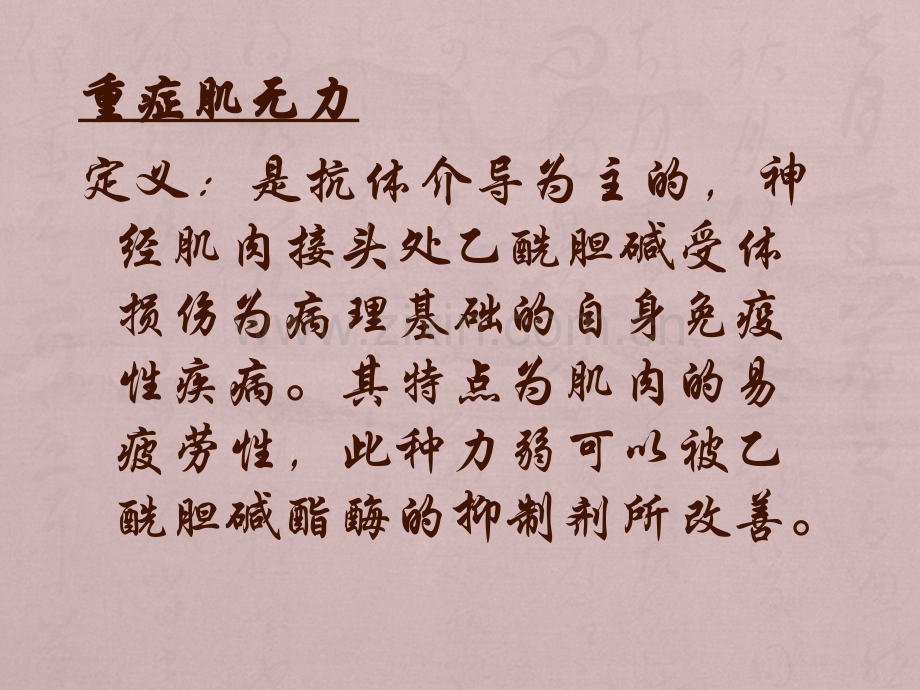 重症肌无力
定义：是抗体介导为主的，神
经肌肉接头处乙酰胆碱受体
损伤为病理基础的自身免疫
性疾病。其特点为肌肉的易
疲劳性，此种力弱可以被乙
酰胆碱酯酶的抑制剂所改善。
www.zixin.com.cn